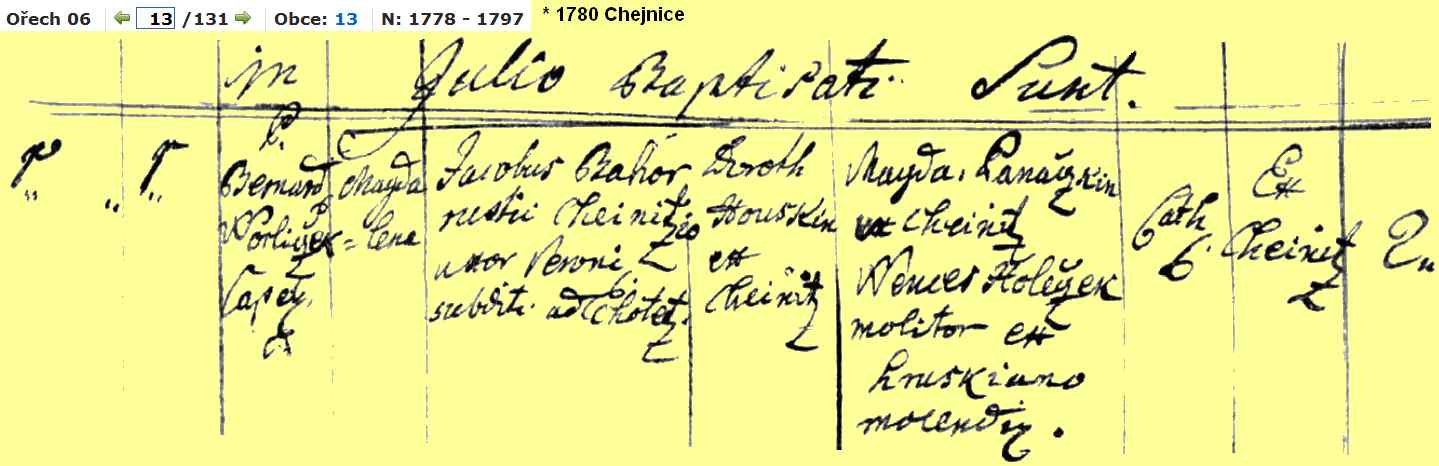 Ořech 06 13 /131 Obce: 13 N: 1778 - 1797 * 1780 Chejnice
in Julio Baptisati Sunt.
P.
Bernard
Worliczek
Capel.
Magda
= lena
Jacobus Bahor
rustici Cheinitz
uxor Veroni
subditi ad Chotecz.
Doroth
Houskin
ex
Cheinitz
Magda. Panaczkin
ex Cheinitz
Wences Holeczek
molitor ex
hruskiano
molendin.
Cath
Ex
Cheinitz